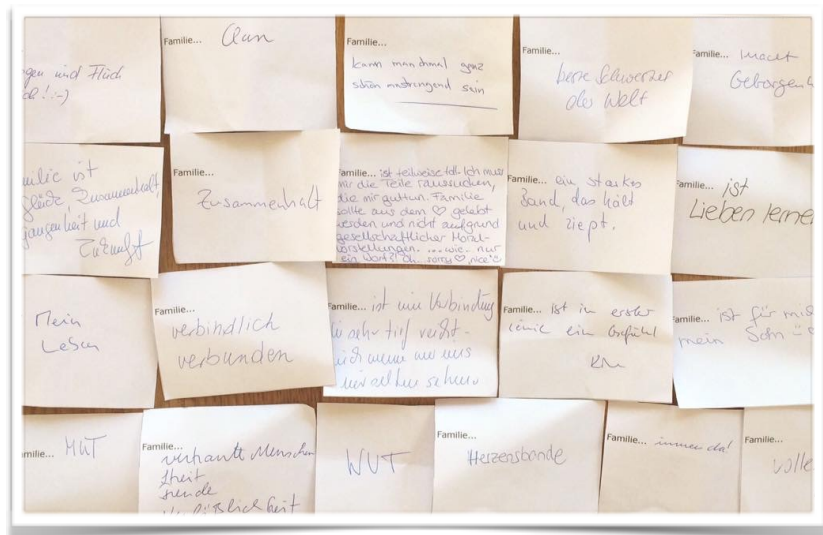 und Fluch
:-)
Familie... Clan
Familie...
kann manchmal ganz
schön anstrengend sein
Familie...
der Welt
Familie... macht
ist
Zusammenhalt,
und
Zukunft
Familie...
Zusammenhalt
Familie... ist teilweise toll. Ich muss
mir die Teile raussuchen,
die mir guttun. Familie
sollte aus dem ♡ gelebt
werden und nicht aufgrund
gesellschaftlicher Moral-
vorstellungen. ... wie.. nur
ein Wort?! Oh... sorry ♡ „nice“
Familie... ein starkes
Band, das hält
und ziept.
Familie... ist
Lieben lerne
Mein
Leben
Familie...
verbindlich
verbunden
Familie... ist eine Verbindung
die sehr tief reicht -
auch wenn wir uns
nur selten sehen
Familie... ist in erster
Linie ein Gefühl
Familie... ist für
mein Sohn
Familie... MUT
Familie...
vertraute Menschen
Streit
Freude
WUT
Familie...
Herzensbande
Familie... immer da!
Familie...
volle